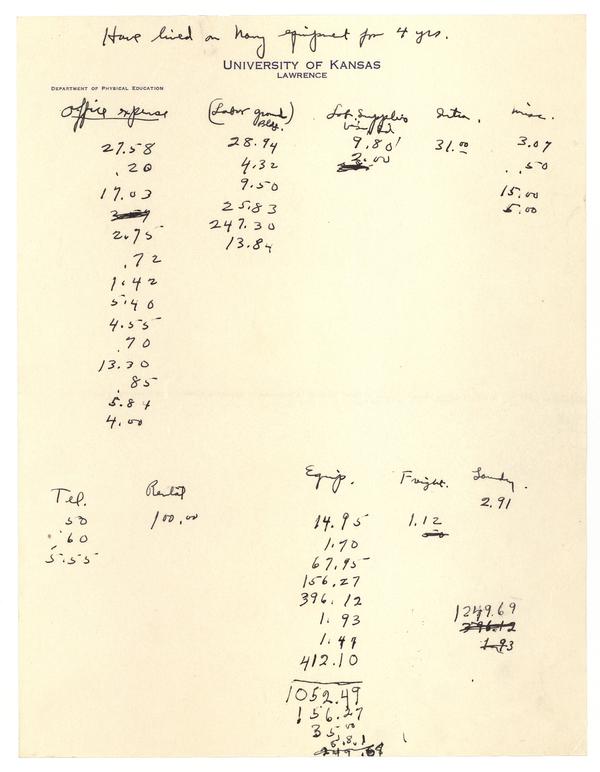 Have lived on Navy equipment for 4 yrs.
UNIVERSITY OF KANSAS
LAWRENCE
DEPARTMENT OF PHYSICAL EDUCATION
Office expense
27.58
.20
17.03
2.75
.72
1.42
5.40
4.55
.70
13.30
.85
5.84
4.00
(Labor ground)
Bldg.
28.94
4.32
9.50
25.83
247.30
13.84
Lab. Supplies
9.80
2.00
31.00
misc.
3.07
.50
15.00
5.00
Tel.
50
60
5.55
Rental
100.00
Equip.
14.95
1.70
67.95
156.27
396.12
1.93
1.47
412.10
1052.49
156.27
35.00
Freight.
1.12
Laundry.
2.91
1249.69
396.12
1.93